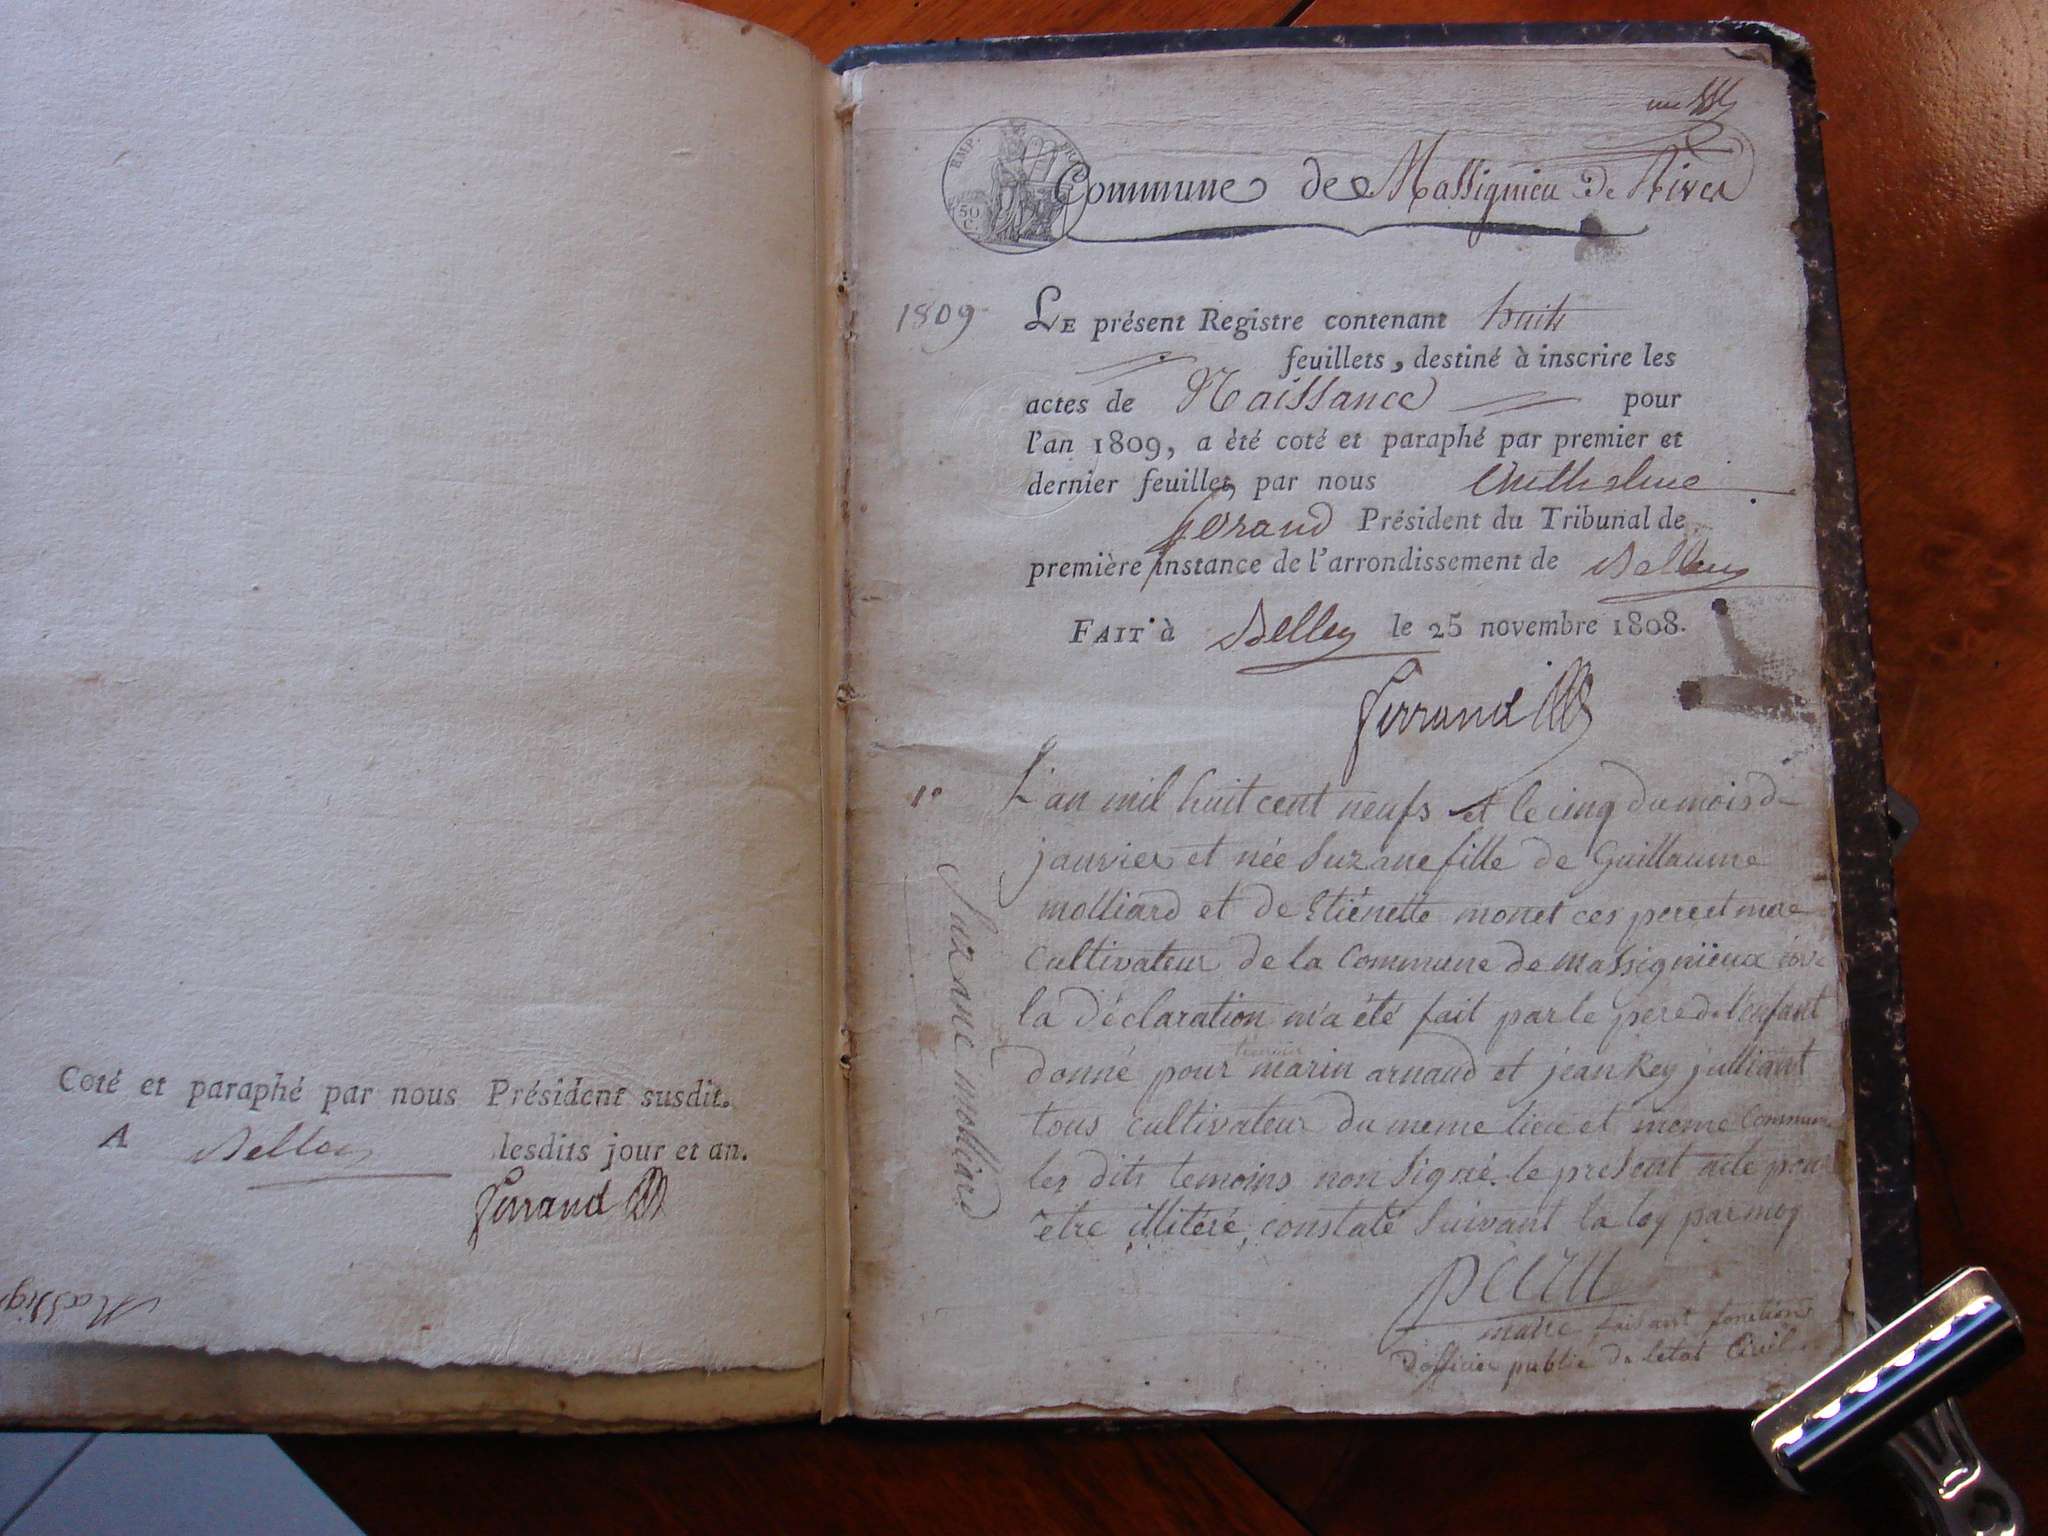 Coté et paraphé par nous Président susdit.
A Belley lesdits jour et an.
Ferrand
Massig
EMP. FRA
50
C.
Commune de Massignieu de Rives
1809
LE présent Registre contenant huit
feuillets, destiné à inscrire les
actes de Naissance pour
l'an 1809, a été coté et paraphé par premier et
dernier feuillet, par nous Anthelme
ferrand Président du Tribunal de
première instance de l'arrondissement de Belley
FAIT à Belley le 25 novembre 1808.
Ferrand
1º
Suzanne molliard
L'an mil huit cent neufs et le cinq du mois de
janvier et née Suzane fille de Guillaume
molliard et de Etiénette monet ces pere et mere
Cultivateur de la Commune de massignieux
la déclaration m'a été fait par le pere de lenfant
temoin
donné pour marin arnaud et jean Rey julliant
tous cultivateur du meme lieu et meme Commune
les dits temoins non Signé le present acte pour
etre illitéré, constaté Suivant la loy par moy
maire faisant fonctions
Dofficier public de letat Civil